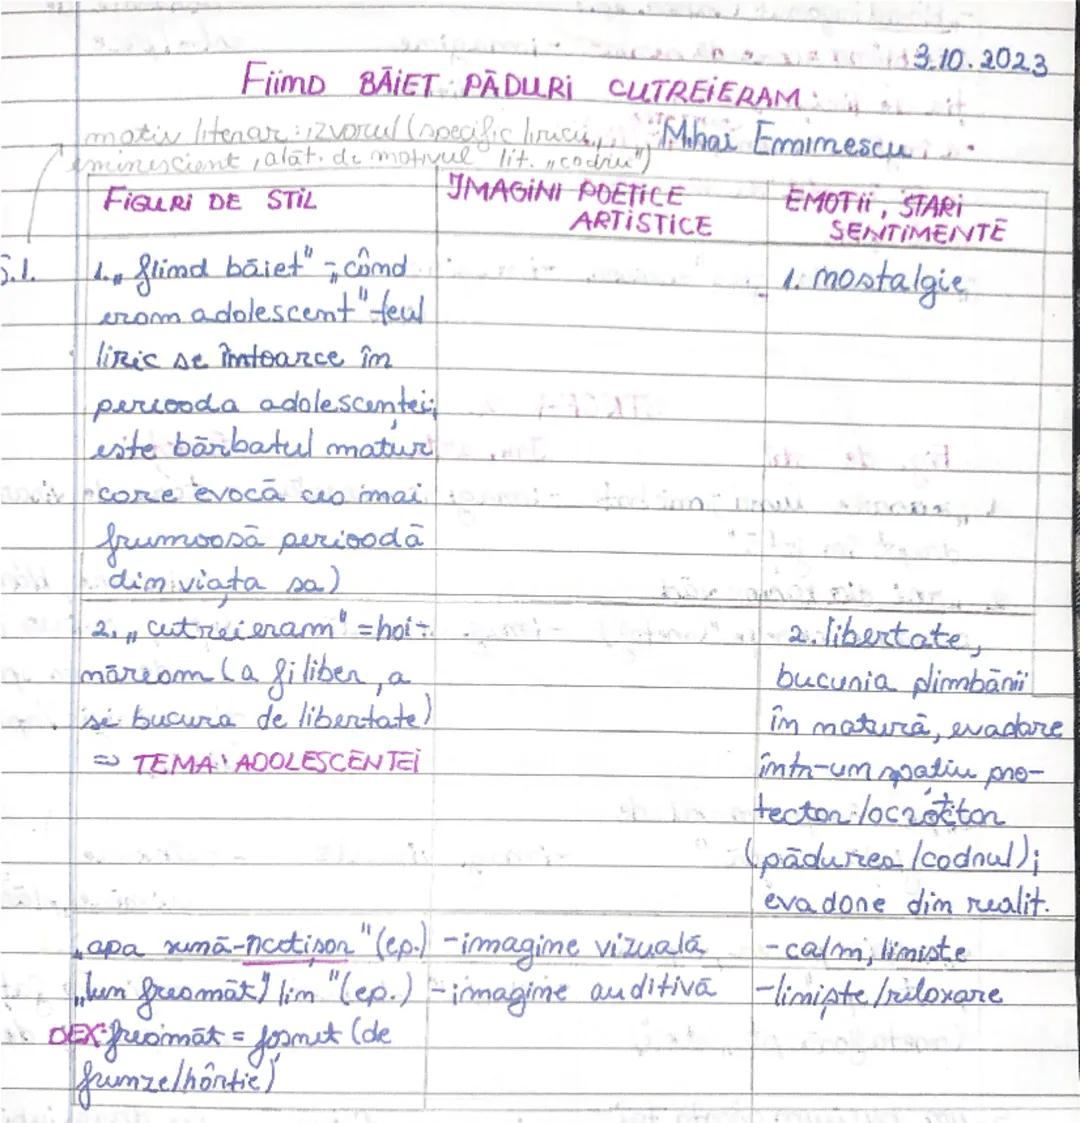 3.10.2023
FiiND BĂiET PĂDURi CUTREiERAM
motiv literar: izvorul (specific liricii
Mihai Eminescu
eminescient, alăt. de motivul lit. „codru")
FiGURi DE STiL
IMAGiNi POETiCE
ARTiSTiCE
EMOTii, STARi
SENTiMENTE
S.1.
1. „fiind băiet" = „când
eram adolescent" (eul
liric se întoarce în
perioada adolescenței;
este bărbatul matur
care evocă cea mai
frumoasă perioadă
din viața sa)
1. nostalgie
2. „cutreieram" = hoi-
năream (a fi liber, a
se bucura de libertate)
=> TEMA ADOLESCENTEi
2. libertate,
bucuria plimbării
în natură, evadare
într-un spațiu pro-
tector/ocrotitor
(pădurea/codrul);
evadare din realit.
„apa sună-ncetișor" (ep.)
-imagine vizuală
-calm, liniște
„lun freamăt) lin" (ep.)
-imagine auditivă
-liniște/relaxare
DEX: freamăt = foșnet (de
frunze/hârtie)